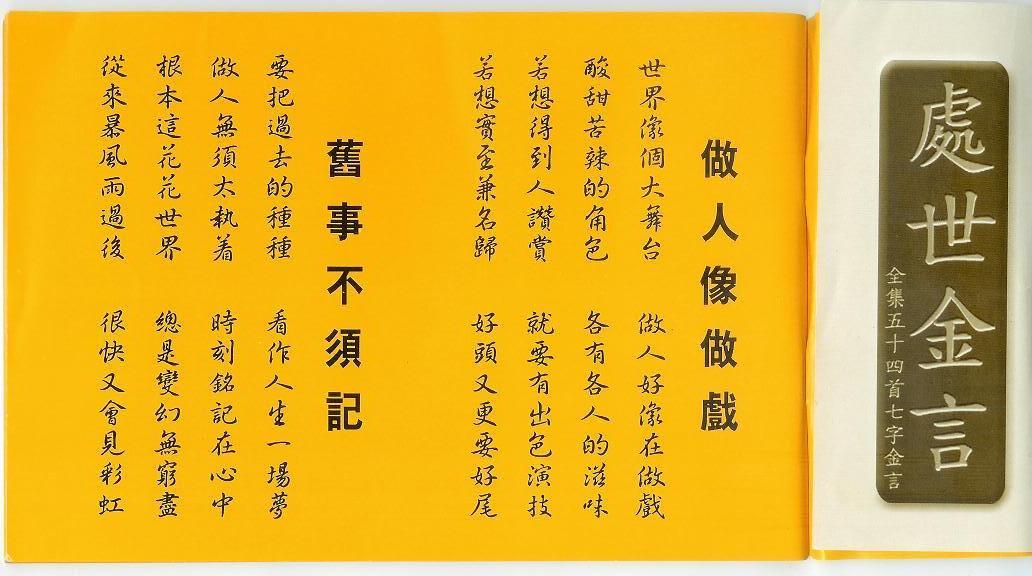 處世金言
全集五十四首七字金言
做人像做戲
世界像個大舞台 做人好像在做戲
酸甜苦辣的角色 各有各人的滋味
若想得到人讚賞 就要有出色演技
若想實至兼名歸 好頭又更要好尾
舊事不須記
要把過去的種種 看作人生一場夢
做人無須太執着 時刻銘記在心中
根本這花花世界 總是變幻無窮盡
從來暴風雨過後 很快又會見彩虹